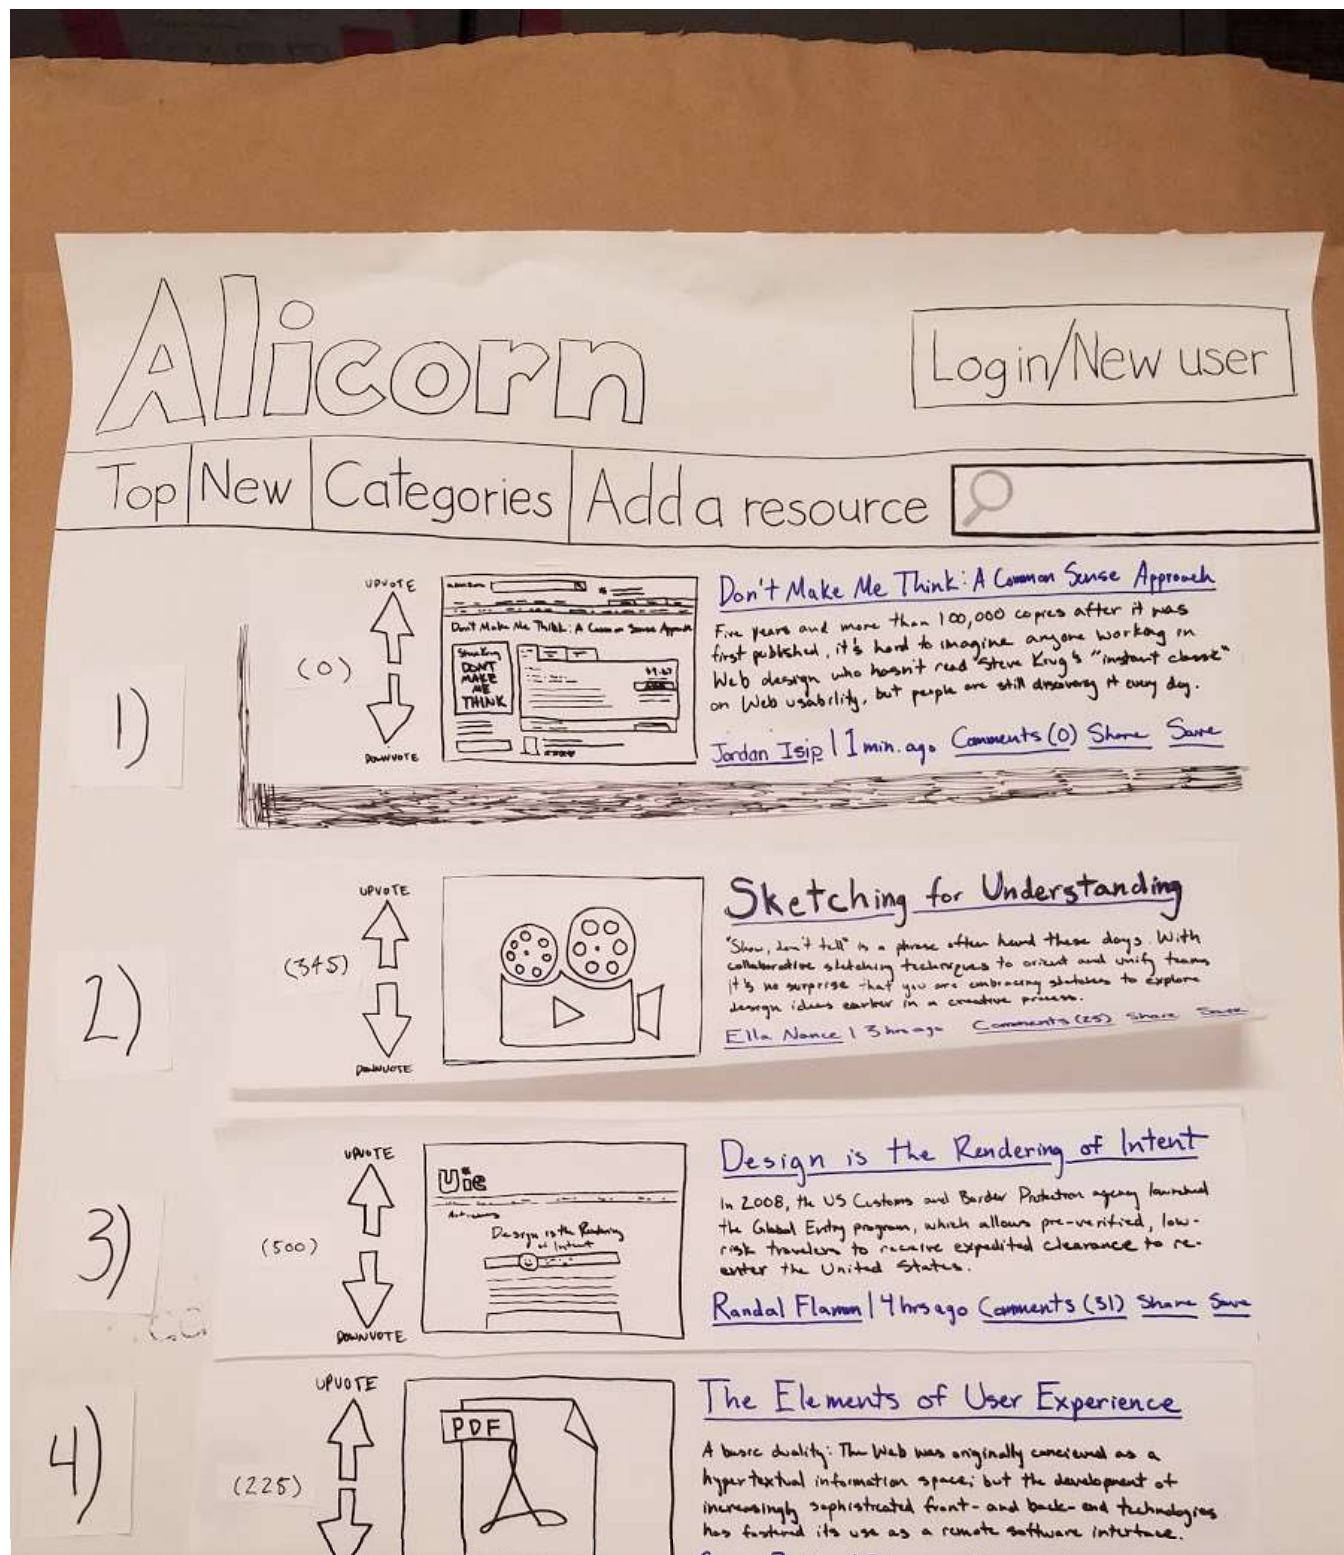 Alicorn
Login/New user
Top New Categories Add a resource
1)
(0)
UPVOTE
DOWNVOTE
Don't Make Me Think: A Common Sense Approach
Steve Krug
DONT
MAKE
ME
THINK
Don't Make Me Think: A Common Sense Approach
Five years and more than 100,000 copies after it was
first published, it's hard to imagine anyone working in
Web design who hasn't read Steve Krug's "instant classic"
on Web usability, but people are still discovering it every day.
Jordan Isip | 1 min. ago Comments (0) Share Save
2)
(345)
UPVOTE
DOWNVOTE
Sketching for Understanding
"Show, don't tell" is a phrase often heard these days. With
collaborative sketching techniques to orient and unify teams
it's no surprise that you are embracing sketches to explore
design ideas earlier in a creative process.
Ella Nance | 3 hrs ago Comments (25) Share Save
3)
(500)
UPVOTE
DOWNVOTE
Uie
Design is the Rendering
of Intent
Design is the Rendering of Intent
In 2008, the US Customs and Border Protection agency launched
the Global Entry program, which allows pre-verified, low-
risk travelers to receive expedited clearance to re-
enter the United States.
Randal Flamm | 4 hrs ago Comments (31) Share Save
4)
(225)
UPVOTE
PDF
The Elements of User Experience
A basic duality: The Web was originally concieved as a
hypertextual information space; but the development of
increasingly sophistricated front- and back-end technologies
has fostered its use as a remote software interface.